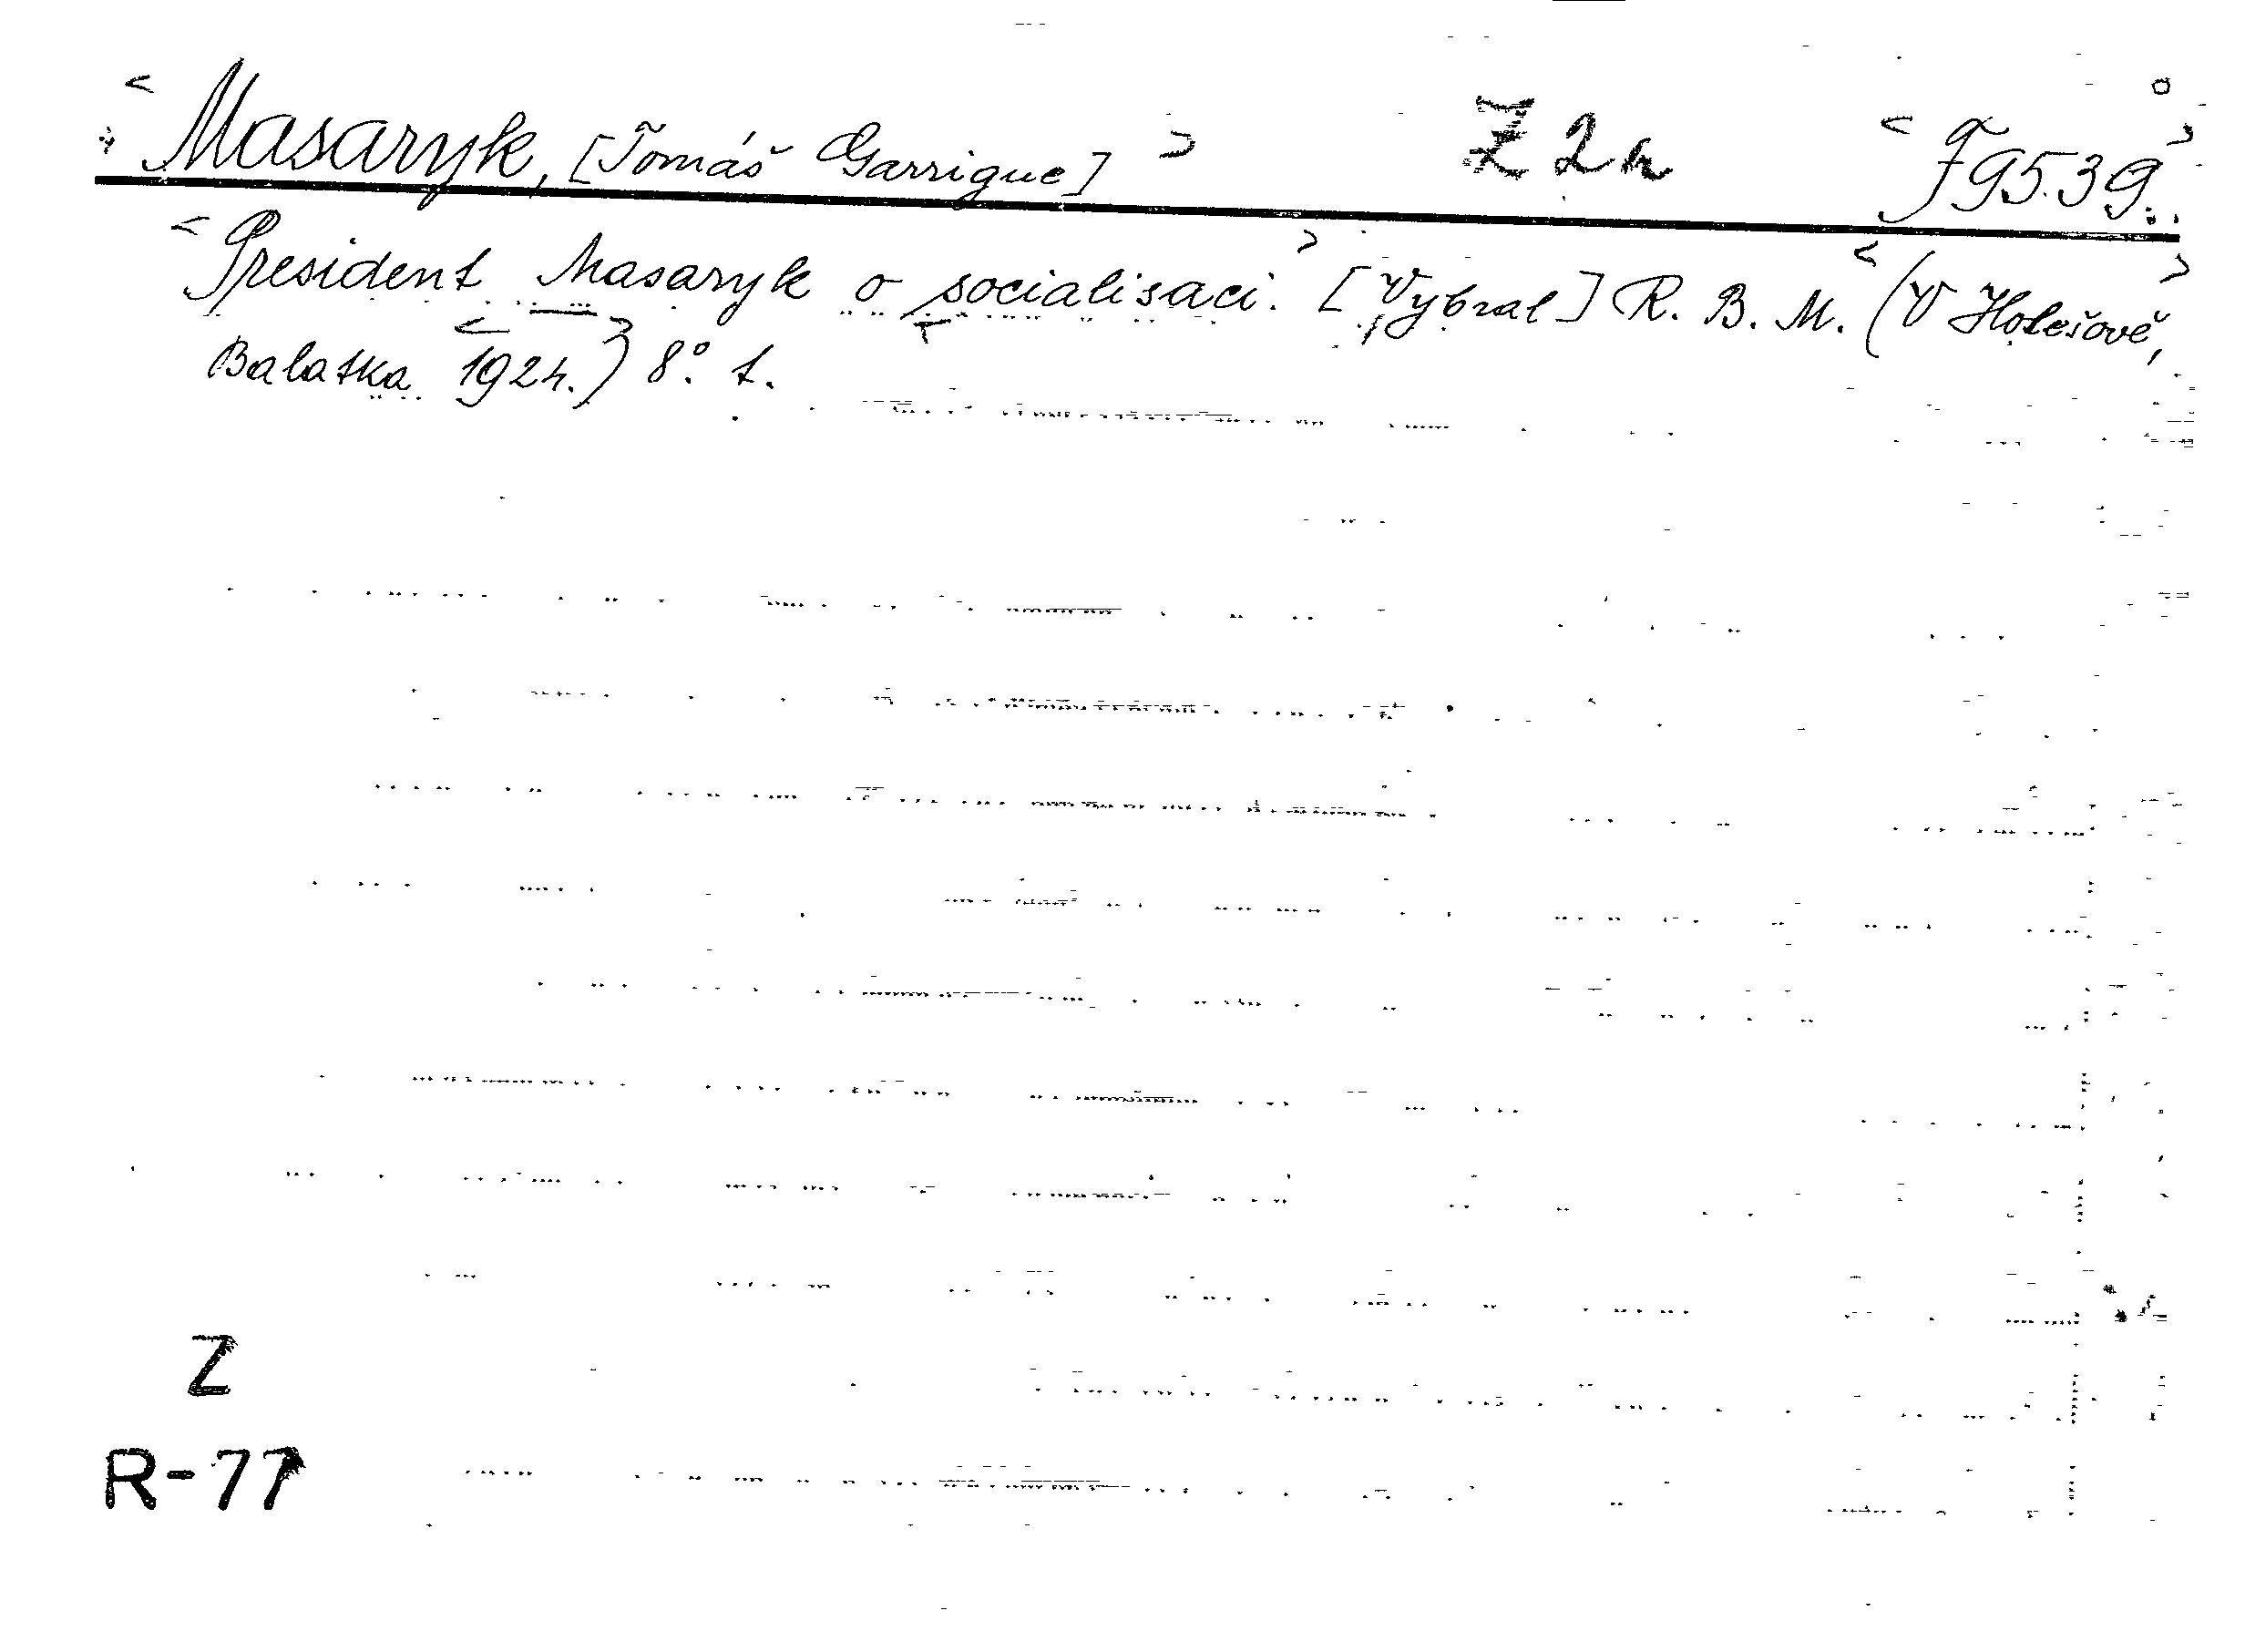 <Masaryk, [Tomáš Garrigue]> Z 2h <J 9539.>
<President Masaryk o socialisaci.> [Vybral] R. B. M. <(V Holešově,>
Balatka <1924.)> 8°. t.
Z
R-77